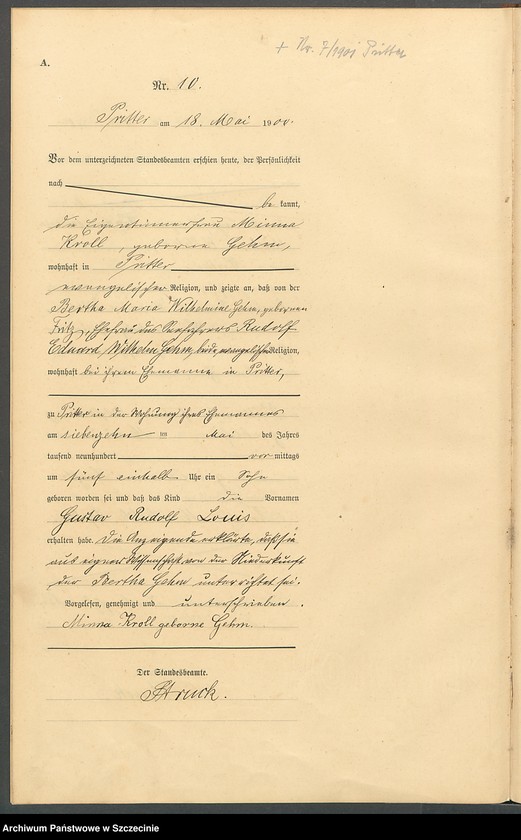 + Nr. 7/1901 Pritter
A.
Nr. 10.
Pritter am 18. Mai 1900.
Vor dem unterzeichneten Standesbeamten erschien heute, der Persönlichkeit
nach
be kannt,
die Eigentümerfrau Minna
Kroll, geborene Gehm,
wohnhaft in Pritter
evangelischer Religion, und zeigte an, daß von der
Bertha Maria Wilhelmine Gehm, geborenen
Fritz, Ehefrau des Seefahrers Rudolf
Eduard Wilhelm Gehm, beide evangelischer Religion,
wohnhaft bei ihrem Ehemanne in Pritter,
zu Pritter in der Wohnung ihres Ehemannes
am siebenzehn ten Mai des Jahres
tausend neunhundert vor mittags
um fünf einhalb Uhr ein Sohn
geboren worden sei und daß das Kind die Vornamen
Gustav Rudolf Louis
erhalten habe. Die Anzeigende erklärte, daß sie
aus eigener Wissenschaft von der Niederkunft
der Bertha Gehm unterrichtet sei.
Vorgelesen, genehmigt und unterschrieben.
Minna Kroll geborne Gehm.
Der Standesbeamte.
Struck.
Archiwum Państwowe w Szczecinie